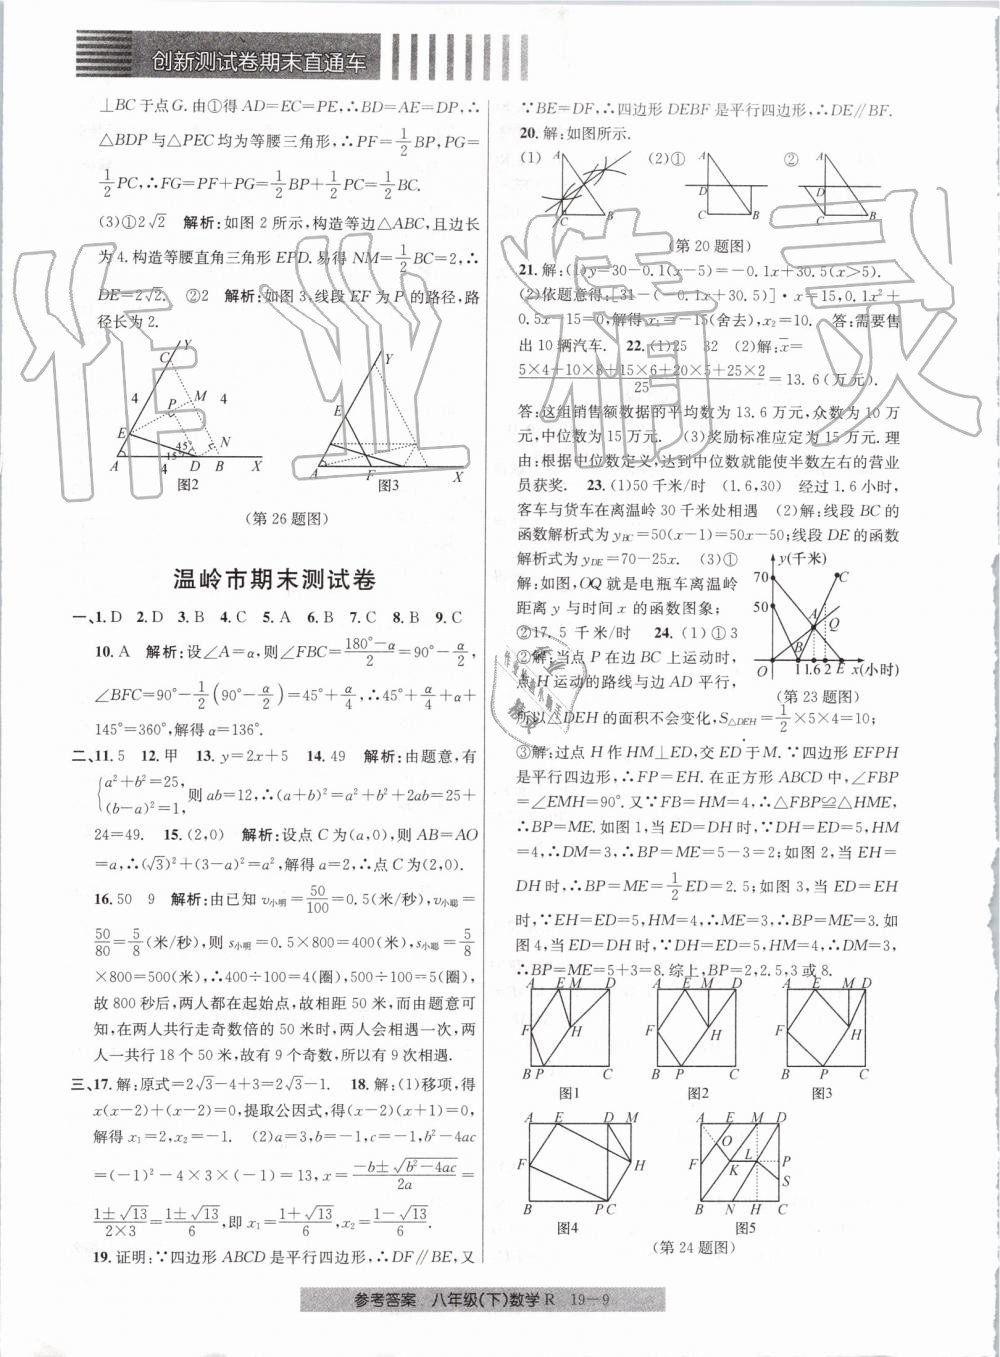 创新测试卷期末直通车
⊥BC于点G. 由①得AD=EC=PE,∴BD=AE=DP,∴
△BDP与△PEC均为等腰三角形,∴PF=1/2BP,PG=
1/2PC,∴FG=PF+PG=1/2BP+1/2PC=1/2BC.
(3)①2√2 解析:如图2所示,构造等边△ABC,且边长
为4.构造等腰直角三角形EPD.易得NM=1/2BC=2,∴
DE=2√2. ②2 解析:如图3,线段EF为P的路径,路
径长为2.
Y
C
4
P
M
4
E
45°
N
A
15°
D
B
X
4
图2
Y
A
F
X
图3
(第26题图)
温岭市期末测试卷
一、1.D 2.D 3.B 4.C 5.A 6.B 7.C 8.B 9.C
10.A 解析:设∠A=α,则∠FBC=(180°-α)/2=90°-α/2,
∠BFC=90°-1/2(90°-α/2)=45°+α/4,∴45°+α/4+α+
145°=360°,解得α=136°.
二、11.5 12.甲 13.y=2x+5 14.49 解析:由题意,有
{a²+b²=25,
(b-a)²=1, 则ab=12,∴(a+b)²=a²+b²+2ab=25+
24=49. 15.(2,0) 解析:设点C为(a,0),则AB=AO
=a,∴(√3)²+(3-a)²=a²,解得a=2,∴点C为(2,0).
16.50 9 解析:由已知v小明=50/100=0.5(米/秒),v小聪=
50/80=5/8(米/秒),则s小明=0.5×800=400(米),s小聪=5/8
×800=500(米),∴400÷100=4(圈),500÷100=5(圈),
故800秒后,两人都在起始点,故相距50米,而由题意可
知,在两人共行走奇数倍的50米时,两人会相遇一次,两
人一共行18个50米,故有9个奇数,所以有9次相遇.
三、17.解:原式=2√3-4+3=2√3-1. 18.解:(1)移项,得
x(x-2)+(x-2)=0,提取公因式,得(x-2)(x+1)=0,
解得x₁=2,x₂=-1. (2)a=3,b=-1,c=-1,b²-4ac
=(-1)²-4×3×(-1)=13,x=(-b±√(b²-4ac))/2a=
(1±√13)/(2×3)=(1±√13)/6,即x₁=(1+√13)/6,x₂=(1-√13)/6.
19.证明:∵四边形ABCD是平行四边形,∴DF∥BE,又
∵BE=DF,∴四边形DEBF是平行四边形,∴DE∥BF.
20.解:如图所示.
(1)
A
C
B
(2)①
A
D
C
B
②
A
D
C
B
(第20题图)
21.解:(1)y=30-0.1(x-5)=-0.1x+30.5(x>5).
(2)依题意得:[31-(-0.1x+30.5)]·x=15,0.1x²+
0.5x-15=0,解得x₁=-15(舍去),x₂=10. 答:需要售
出10辆汽车. 22.(1)25 32 (2)解:x̄=
(5×4+10×8+15×6+20×5+25×2)/25=13.6(万元).
答:这组销售额数据的平均数为13.6万元,众数为10万
元,中位数为15万元. (3)奖励标准应定为15万元. 理
由:根据中位数定义,达到中位数就能使半数左右的营业
员获奖. 23.(1)50千米/时 (1.6,30) 经过1.6小时,
客车与货车在离温岭30千米处相遇 (2)解:线段BC的
函数解析式为yBC=50(x-1)=50x-50;线段DE的函数
解析式为yDE=70-25x. (3)①
解:如图,OQ就是电瓶车离温岭
距离y与时间x的函数图象;
②17.5千米/时 24.(1)①3
②解:当点P在边BC上运动时,
点H运动的路线与边AD平行,
y(千米)
70
D
C
50
A
Q
B
O
1
1.6
2
E
x(小时)
(第23题图)
所以△DEH的面积不会变化,S△DEH=1/2×5×4=10;
③解:过点H作HM⊥ED,交ED于M.∵四边形EFPH
是平行四边形,∴FP=EH.在正方形ABCD中,∠FBP
=∠EMH=90°.又∵FB=HM=4,∴△FBP≌△HME,
∴BP=ME.如图1,当ED=DH时,∵DH=ED=5,HM
=4,∴DM=3,∴BP=ME=5-3=2;如图2,当EH=
DH时,∴BP=ME=1/2ED=2.5;如图3,当ED=EH
时,∵EH=ED=5,HM=4,∴ME=3,∴BP=ME=3.如
图4,当ED=DH时,∵DH=ED=5,HM=4,∴DM=3,
∴BP=ME=5+3=8.综上,BP=2,2.5,3或8.
A
E
M
D
F
H
B
P
C
图1
A
E
M
D
F
H
B
P
C
图2
A
E
M
D
F
H
B
P
C
图3
A
E
D
M
F
H
B
P
C
图4
A
E
M
D
F
O
K
L
P
S
B
N
H
C
图5
(第24题图)
参考答案 八年级(下)数学R 19-9
作业精灵